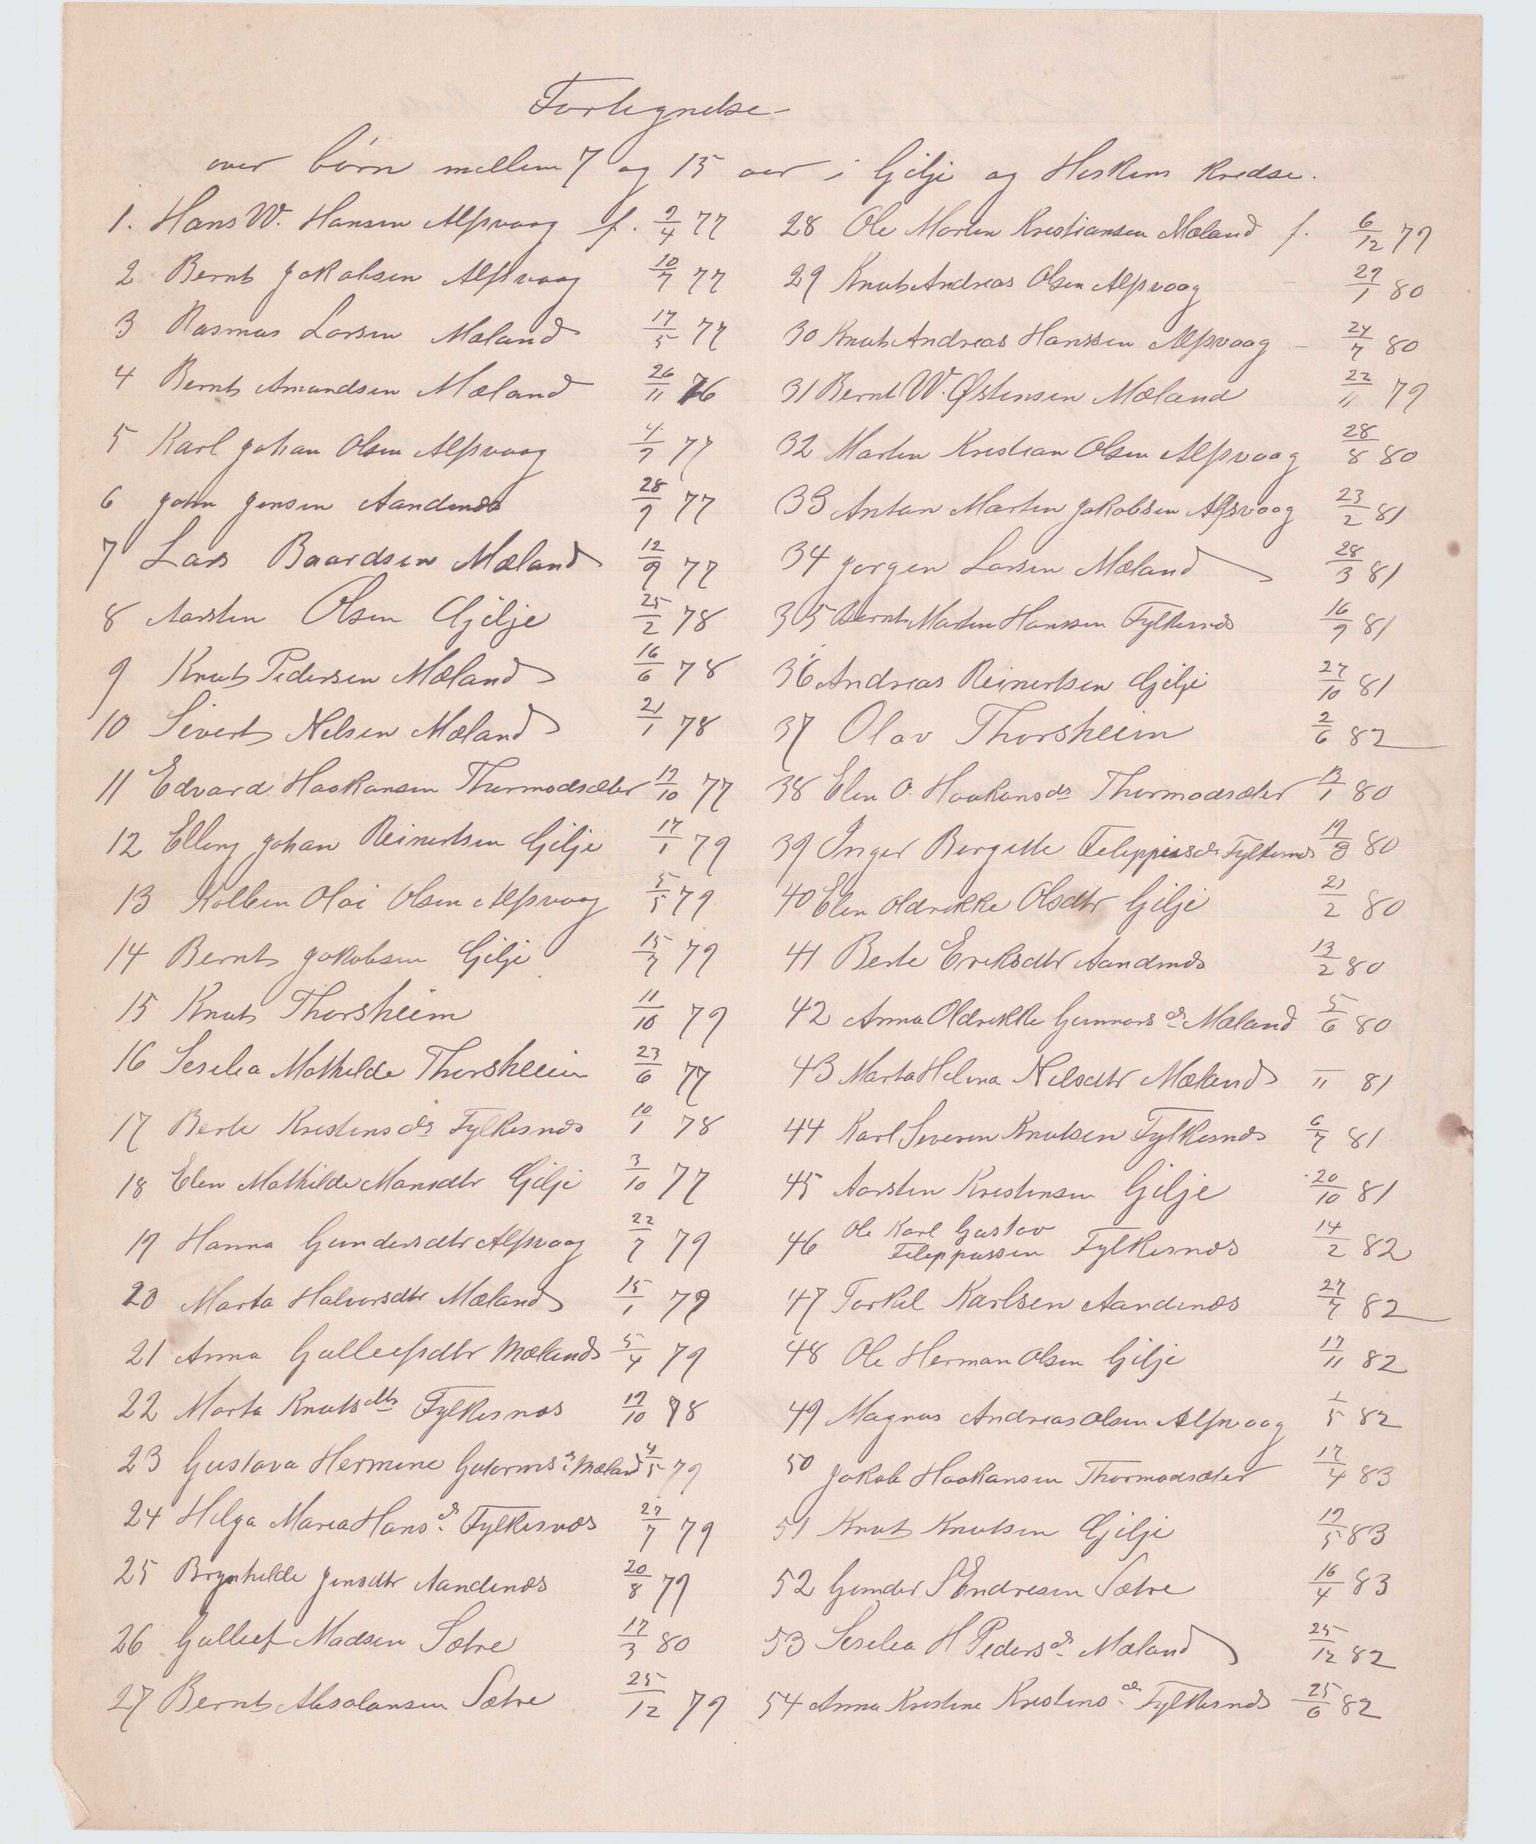 Fortegnelse
over børn mellem 7 og 15 aar i Gilje og Heskem Kredse.
1. Hans W. Hansen Alfsvaag f. 9/4 77
2 Bernt Jakobsen Alfsvaag 10/7 77
3 Rasmus Larsen Mæland 17/5 77
4 Bernt Amundsen Mæland 26/11 76
5 Karl Johan Olsen Alfsvaag 4/7 77
6 John Jensen Aandenæs 28/9 77
7 Lars Baardsen Mæland 12/9 77
8 Aarsten Olsen Gjilje 25/2 78
9 Knut Pedersen Mæland 16/6 78
10 Sivert Nelsen Mæland 21/1 78
11 Edvard Haakonsen Thormodsæter 19/10 77
12 Elling Johan Reinertsen Gilje 17/1 79
13 Kolbein Olai Olsen Alfsvaag 5/5 79
14 Bernt Jakobsen Gilje 15/7 79
15 Knut Thorsheim 11/10 79
16 Sesilia Mathilde Thorsheim 23/6 77
17 Berte Kristensdr Fylkesnæs 10/1 78
18 Elen Mathilde Monsdtr Gilje 3/10 77
19 Hanna Gundersdtr Alfsvaag 22/7 79
20 Marta Halvorsdtr Mæland 15/1 79
21 Anna Gulleifsdtr Mæland 5/4 79
22 Marta Knutsdtr Fylkesnæs 19/10 78
23 Gustava Hermine Gutormsdr Mæland 4/5 79
24 Helga Maria Hansdr. Fylkesnæs 27/7 79
25 Brynhilde Jensdtr Aandenæs 20/8 79
26 Gulleif Madsen Sætre 17/3 80
27 Bernt Absolonsen Sætre 25/12 79
28 Ole Marten Kristiansen Mæland f. 6/12 79
29 Knut Andreas Olsen Alfsvaag - 27/1 80
30 Knut Andreas Hanssen Alfsvaag - 24/7 80
31 Bernt W. Østensen Mæland 22/11 79
32 Marten Kristian Olsen Alfsvaag 28/8 80
33 Anton Marten Jakobsen Alfsvaag 23/2 81
34 Jørgen Larsen Mæland 28/3 81
35 Bernt Marten Hanssen Fylkesnæs 16/9 81
36 Andreas Reinertsen Gilje 27/10 81
37 Olav Thorsheim 2/6 82
38 Elen O. Haakonsdr Thormodsæter 13/1 80
39 Inger Bergitte Filippusdr Fylkesnæs 19/8 80
40 Elen Oldrikke Olsdtr Gilje 21/2 80
41 Berte Eriksdtr Aandenæs 13/2 80
42 Anna Oldrikke Gunnarsdr Mæland 5/6 80
43 Marta Helena Nelsdtr Mæland /11 81
44 Karl Severin Knutsen Fylkesnæs 6/7 81
45 Aarsten Kristensen Gilje 20/10 81
46 Ole Karl Gustav Filippussen Fylkesnæs 14/2 82
47 Torkel Karlsen Aandenæs 27/7 82
48 Ole Herman Olsen Gilje 17/11 82
49 Magnus Andreas Olsen Alfsvaag 1/5 82
50 Jakob Haakonsen Thormodsæter 17/4 83
51 Knut Knutsen Gilje 19/5 83
52 Gunder S Endresen Sætre 16/4 83
53 Sesilia H Pedersdr. Mæland 25/12 82
54 Anna Kristine Kristensdr. Fylkesnæs 25/6 82